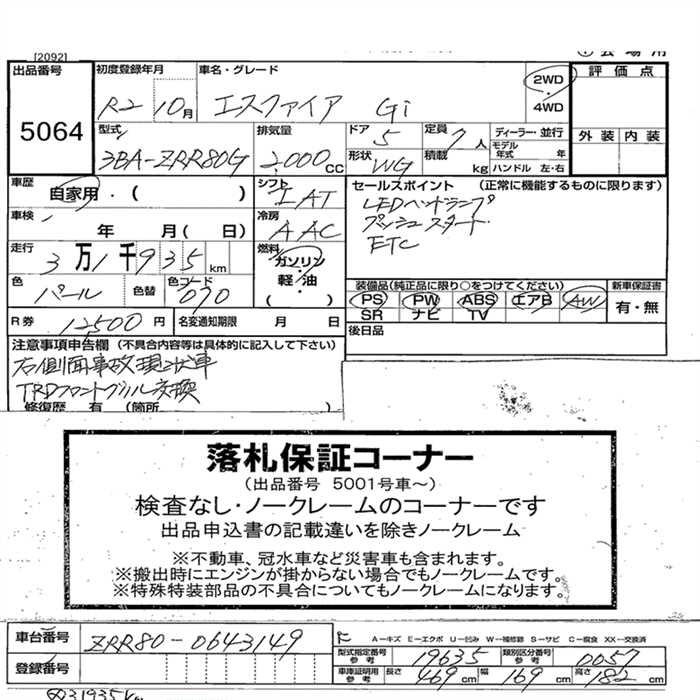 [2092]
出品番号 初度登録年月 車名・グレード 2WD・4WD 評価点
5064 R2 10月 エスクァイア Gi
型式 排気量 ドア 5 定員 7人 ディーラー・並行 外装 内装
3BA-ZRR80G 2,000cc 形状 WG 積載 kg モデル年式 年 ハンドル 左・右
車歴 自家用・( ) シフト IAT セールスポイント (正常に機能するものに限ります)
LEDヘッドランプ
プッシュスタート
ETC
車検 年 月(日) 冷房 AAC
走行 3万1千935km 燃料 ガソリン・軽油・( )
色 パール 色替 色コード 070 装備品(純正品に限り○をつけてください) 新車保証書
PS PW ABS エアB AW 有・無
SR ナビ TV
R券 12500円 名変通知期限 月 日 後日品
注意事項申告欄 (不具合内容等は具体的に記入して下さい)
右側面事故現状車
TRDフロントグリル交換
修復歴 有 (箇所
落札保証コーナー
(出品番号 5001号車~)
検査なし・ノークレームのコーナーです
出品申込書の記載違いを除きノークレーム
※不動車、冠水車など災害車も含まれます。
※搬出時にエンジンが掛からない場合でもノークレームです。
※特殊特装部品の不具合についてもノークレームになります。
車台番号 ZRR80-0643149 A-キズ E-エクボ U-凹み W-補修跡 S-サビ C-腐食 XX-交換済
型式指定番号 参考 19635 類別区分番号 参考 0057
登録番号 車庫証明用 参考 長さ 469cm 幅 169cm 高さ 182cm
31935km